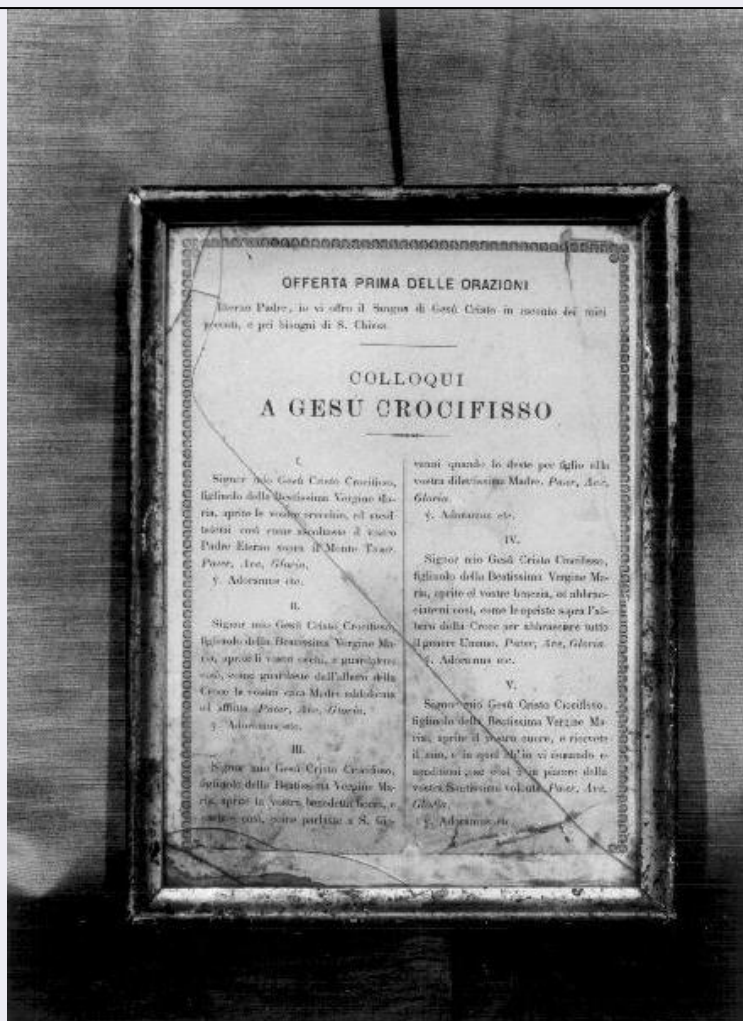 OFFERTA PRIMA DELLE ORAZIONI
Eterno Padre, io vi offro il Sangue di Gesù Cristo in isconto dei miei
peccati, e pei bisogni di S. Chiesa
COLLOQUI
A GESÙ CROCIFISSO
I.
Signor mio Gesù Cristo Crocifisso,
figliuolo della Beatissima Vergine Ma-
ria, aprite le vostre orecchie, ed
così come ascoltaste il vostro
Padre Eterno sopra il Monte
Pater, Ave, Gloria.
℣. Adoramus etc.
II.
Signor mio Gesù Cristo Crocifisso,
figliuolo della Beatissima Vergine Ma-
ria, aprite li vostri occhi, e guardatemi
così, come guardaste dall'albero della
Croce la vostra cara Madre addolorata
ed afflitta. Pater, Ave, Gloria.
℣. Adoramus etc.
III.
Signor mio Gesù Cristo Crocifisso,
figliuolo della Beatissima Vergine Ma-
ria, aprite la vostra benedetta bocca, e
così, come parlaste a S. Gio-
vanni quando lo deste per figlio alla
vostra dilettissima Madre. Pater, Ave,
Gloria.
℣. Adoramus etc.
IV.
Signor mio Gesù Cristo Crocifisso,
figliuolo della Beatissima Vergine Ma-
ria, aprite le vostre braccia, ed abbrac-
ciatemi così, come le apriste sopra l'al-
bero della Croce per abbracciare tutto
il genere Umano. Pater, Ave, Gloria.
℣. Adoramus etc.
V.
Signor mio Gesù Cristo Crocifisso,
figliuolo della Beatissima Vergine Ma-
ria, aprite il vostro cuore, e ricevete
il mio, e in quel ch'io vi domando
se così è in piacere della
vostra Santissima volontà. Pater, Ave,
Gloria.
℣. Adoramus etc.